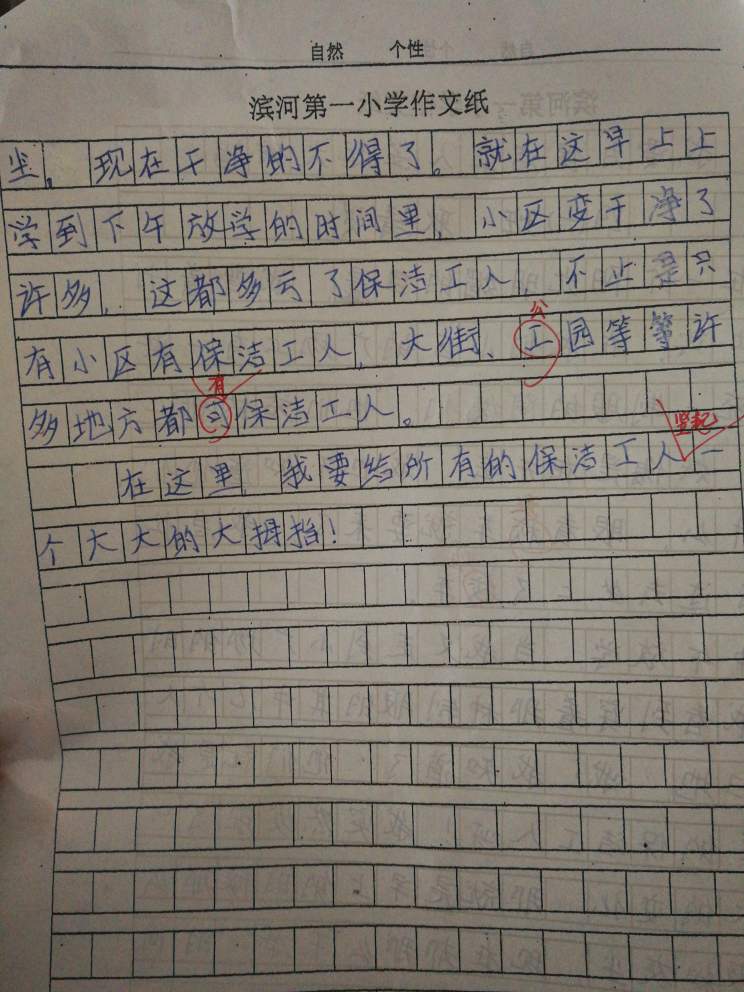 自然 个性
滨河第一小学作文纸
尘，现在干净的不得了。就在这早上上
学到下午放学的时间里，小区变干净了
许多，这都多亏了保洁工人，不止是只
公
有小区有保洁工人，大街、工园等等许
有
多地方都可保洁工人。
竖起
在这里，我要给所有的保洁工人一
个大大的大拇指！